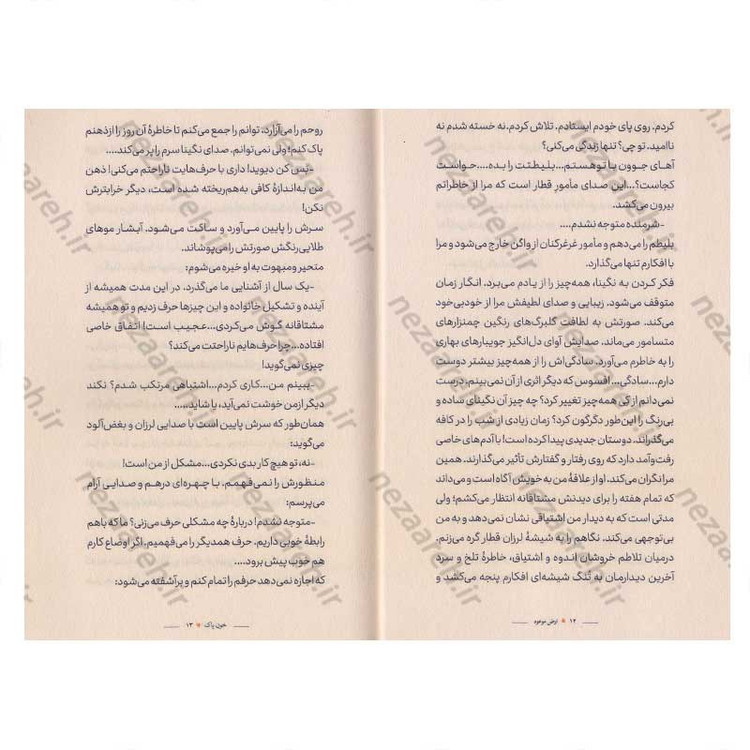 کردم. روی پای خودم ایستادم. تلاش کردم. نه خسته شدم نه
ناامید. تو چی؟ تنها زندگی می‌کنی؟
آهای جوون با تو هستم...بلیطتت را بده....حواست
کجاست؟...این صدای مأمور قطار است که مرا از خاطراتم
بیرون می‌کشد.
-شرمنده متوجه نشدم....
بلیطم را می‌دهم و مأمور غرغرکنان از واگن خارج می‌شود و مرا
با افکارم تنها می‌گذارد.
فکر کردن به نگینا، همه‌چیز را از یادم می‌برد. انگار زمان
متوقف می‌شود. زیبایی و صدای لطیفش مرا از خودبی‌خود
می‌کند. صورتش به لطافت گلبرگ‌های رنگین چمنزارهای
متسامور می‌ماند. صدایش آوای دل‌انگیز جویبارهای بهاری
را به خاطرم می‌آورد. سادگی‌اش را از همه‌چیز بیشتر دوست
دارم...سادگی... افسوس که دیگر اثری از آن نمی‌بینم. درست
نمی‌دانم از کی همه‌چیز تغییر کرد؟ چه چیز آن نگینای ساده و
بی‌رنگ را این‌طور دگرگون کرد؟ زمان زیادی از شب را در کافه
می‌گذراند. دوستان جدیدی پیدا کرده است! با آدم‌های خاصی
رفت‌وآمد دارد که روی رفتار و گفتارش تأثیر می‌گذارند. همین
مرا نگران می‌کند. او از علاقهٔ من به خویش آگاه است و می‌داند
که تمام هفته را برای دیدنش مشتاقانه انتظار می‌کشم؛ ولی
مدتی است که به دیدار من اشتیاقی نشان نمی‌دهد و به من
بی‌توجهی می‌کند. نگاهم را به شیشهٔ لرزان قطار گره می‌زنم.
درمیان تلاطم خروشان اندوه و اشتیاق، خاطرهٔ تلخ و سرد
آخرین دیدارمان به تُنگ شیشه‌ای افکارم پنجه می‌کشد و
۱۲ * ارض موعود
روحم را می‌آزارد. توانم را جمع می‌کنم تا خاطرهٔ آن روز را از ذهنم
پاک کنم؛ ولی نمی‌توانم. صدای نگینا سرم را پر می‌کند....
-بس کن دیوید! داری با حرف‌هایت ناراحتم می‌کنی! ذهن
من به‌اندازهٔ کافی به‌هم‌ریخته شده است، دیگر خرابترش
نکن!
سرش را پایین می‌آورد و ساکت می‌شود. آبشار موهای
طلایی‌رنگش صورتش را می‌پوشاند.
متحیر و مبهوت به او خیره می‌شوم:
-یک سال از آشنایی ما می‌گذرد. در این مدت همیشه از
آینده و تشکیل خانواده و این چیزها حرف زدیم و تو همیشه
مشتاقانه گوش می‌کردی...عجیب است! اتفاق خاصی
افتاده...چرا حرف‌هایم ناراحتت می‌کند؟
چیزی نمی‌گوید!
-ببینم من...کاری کردم...اشتباهی مرتکب شدم؟ نکند
دیگر از من خوشت نمی‌آید، یا شاید.....
همان‌طور که سرش پایین است با صدایی لرزان و بغض‌آلود
می‌گوید:
-نه، تو هیچ کار بدی نکردی...مشکل از من است!
منظورش را نمی‌فهمم. با چهره‌ای درهم و صدایی آرام
می‌پرسم:
-متوجه نشدم! دربارهٔ چه مشکلی حرف می‌زنی؟ ما که باهم
رابطهٔ خوبی داریم. حرف همدیگر را می‌فهمیم. اگر اوضاع کارم
هم خوب پیش برود....
که اجازه نمی‌دهد حرفم را تمام کنم و پرآشفته می‌شود:
خون پاک * ۱۳
nezaareh.ir